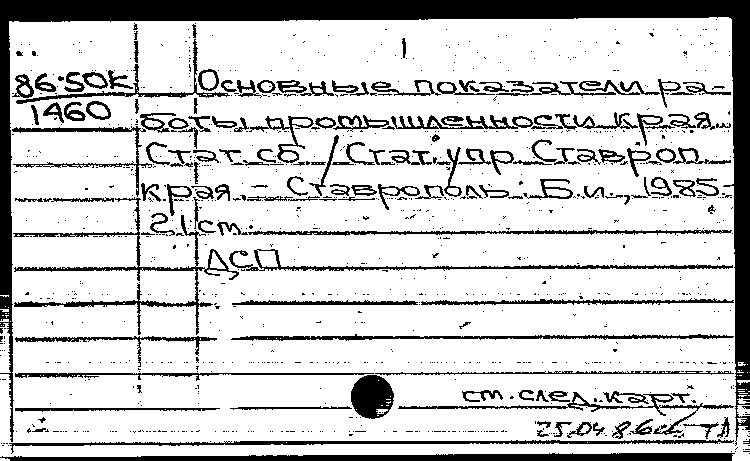 1
86-50К Основные показатели ра-
1460 боты промышленности края.
Стат. сб / Стат. упр Ставроп.
края. - Ставрополь: Б.и., 1985-
21 см.
ДСП
см. след. карт.
25.04.86